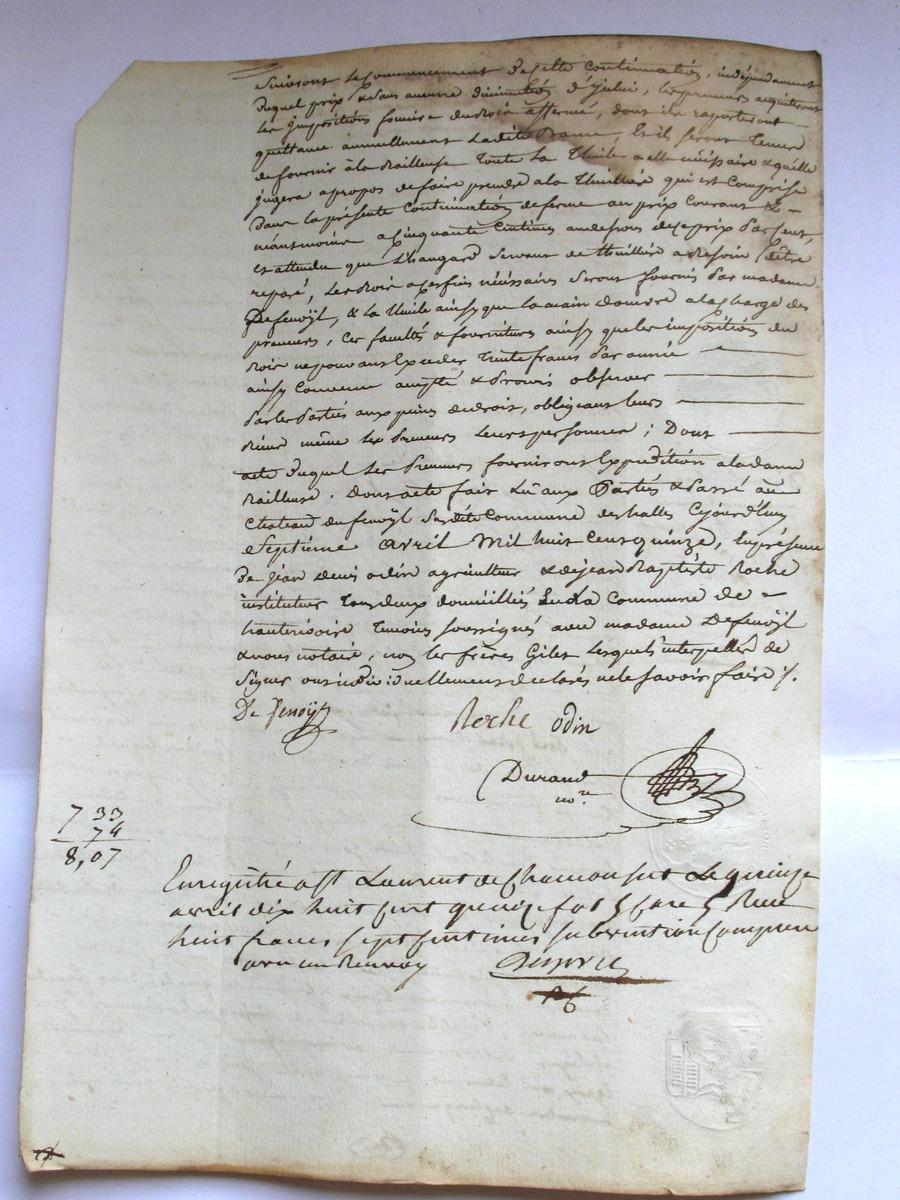 Suivront le commencement de cette continuation, indépendament
duquel prix & sans aucune diminution d'yceluy, les preneurs acquiteront
les impositions foncière du bois affermé, dont ils raporteront
quittance annuellement à ladite Dame, Et ils seront tenus
de fournir à la Bailleuse toute la thuile a elle nécessaire & qu'elle
jugera apropos de faire prendre a la thuillière qui est comprise
dans la présente continuation de ferme au prix courant &
néantmoins a cinquante centimes audessous de ce prix par cent,
et attendu que l'hangard servant de thuillière a besoin d'être
reparé, les bois a ces fins nécessaires seront fournis par madame
Defenoÿl, & la thuile ainsy que la main d'oeuvre a la charge des
preneurs, ces facultés & fournitures ainsy que les impositions du
bois ne pouvant Exceder trente francs par année
ainsy convenu accepté & promis observer
par les parties aux peines de droit, obligeant leurs
biens même les preneurs leurs personnes ; Dont
acte duquel les preneurs fourniront Expédition a la dame
Bailleuse. Dont acte fait Lu aux Parties & Passé au
Chateau du fenoÿl susdite Commune des halles Cejourd'huy
septième avril mil huit cent quinze, En présence
de jean denis odin agriculteur & de jean Baptiste Roche
instituteur tous deux domiciliés En la commune de
hauterivoire temoins soussignés avec madame Defenoÿl
& nous notaire, non les frères Giles lesquels interpellés de
signer ont individuellement déclarés ne le savoir faire ./.
De Fenoÿl Roche odin
Durand
no.re
7 33
74
8,07
Enregistré a St Laurent de Chamousset le quinze
avril dix huit cent quinze fol 5 case 5 Reçu
huit francs sept centimes subvention comprise
avec un Renvoy